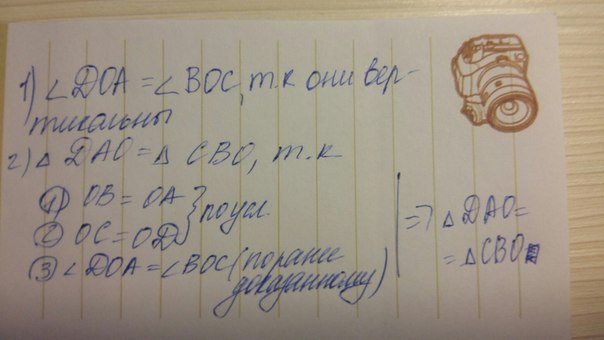 1) ∠DOA = ∠BOC, т.к они вер-
тикальны
2) △ DAO = △ CBO, т.к
① OB = OA } по усл.
② OC = OD
③ ∠DOA = ∠BOC (по ранее
доказанному)
=> △DAO =
= △CBO